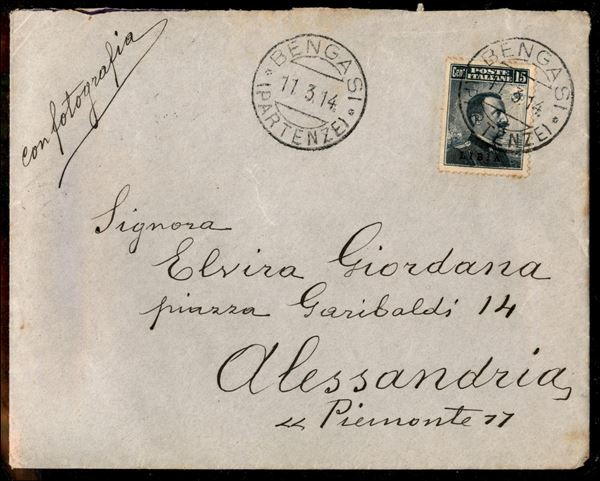 con fotografia
* BENGASI *
11.3.14.
(PARTENZE)
Cent. POSTE ITALIANE 15
LIBIA
* BENGASI *
11.3.14.
(PARTENZE)
Signora
Elvira Giordana
piazza Garibaldi 14
Alessandria
« Piemonte »